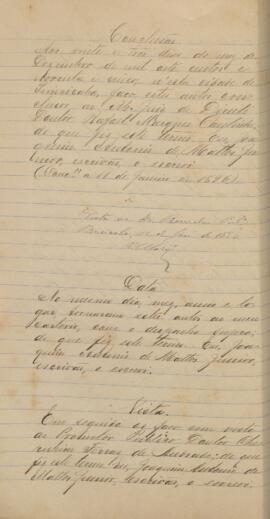 Conclusão
Aos vinte e tres dias do mez de
Dezembro de mil oito centos e
noventa e cinco, nesta cidade de
Piracicaba, faço estes autos con-
clusos ao M. Juiz de Direito
Doutor Rafael Marques Cantinho,
do que fiz este termo. Eu, Joa-
quim Antonio de Mattos Ju-
nior, escrivão, o escrevi.
Vista ao Dr. Promotor Publico
Data
No mesmo dia, mez, anno e lo-
gar, foram-me estes autos em meu
cartorio, com o despacho supra;
do que fiz este termo. Eu, Joa-
quim Antonio de Mattos Junior,
escrivão, o escrevi.
Vista.
Em seguida os faço com vista
ao Promotor Publico Doutor
Ferraz de Andrade; do que
fiz este termo. Eu, Joaquim Antonio de
Mattos Junior, escrivão, o escrevi.